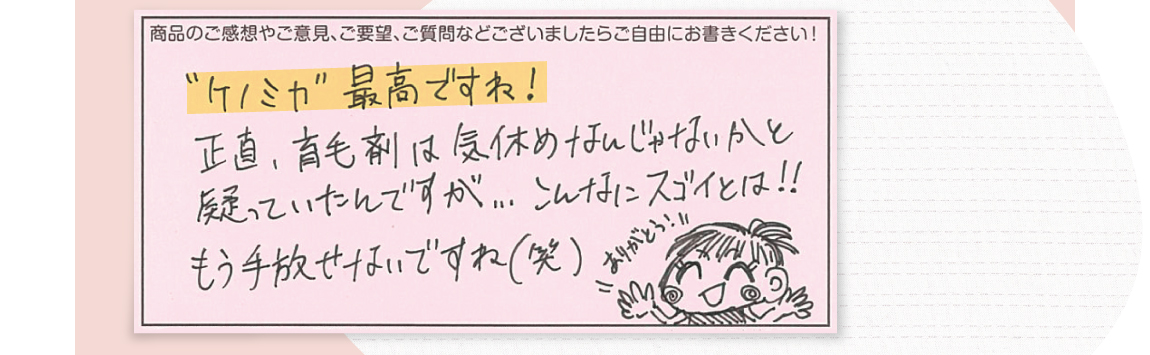 商品のご感想やご意見、ご要望、ご質問などございましたらご自由にお書きください！
"ケノミカ" 最高ですね！
正直、育毛剤は気休めなんじゃないかと
疑っていたんですが... こんなにスゴイとは!!
もう手放せないですね(笑)
ありがとう!!